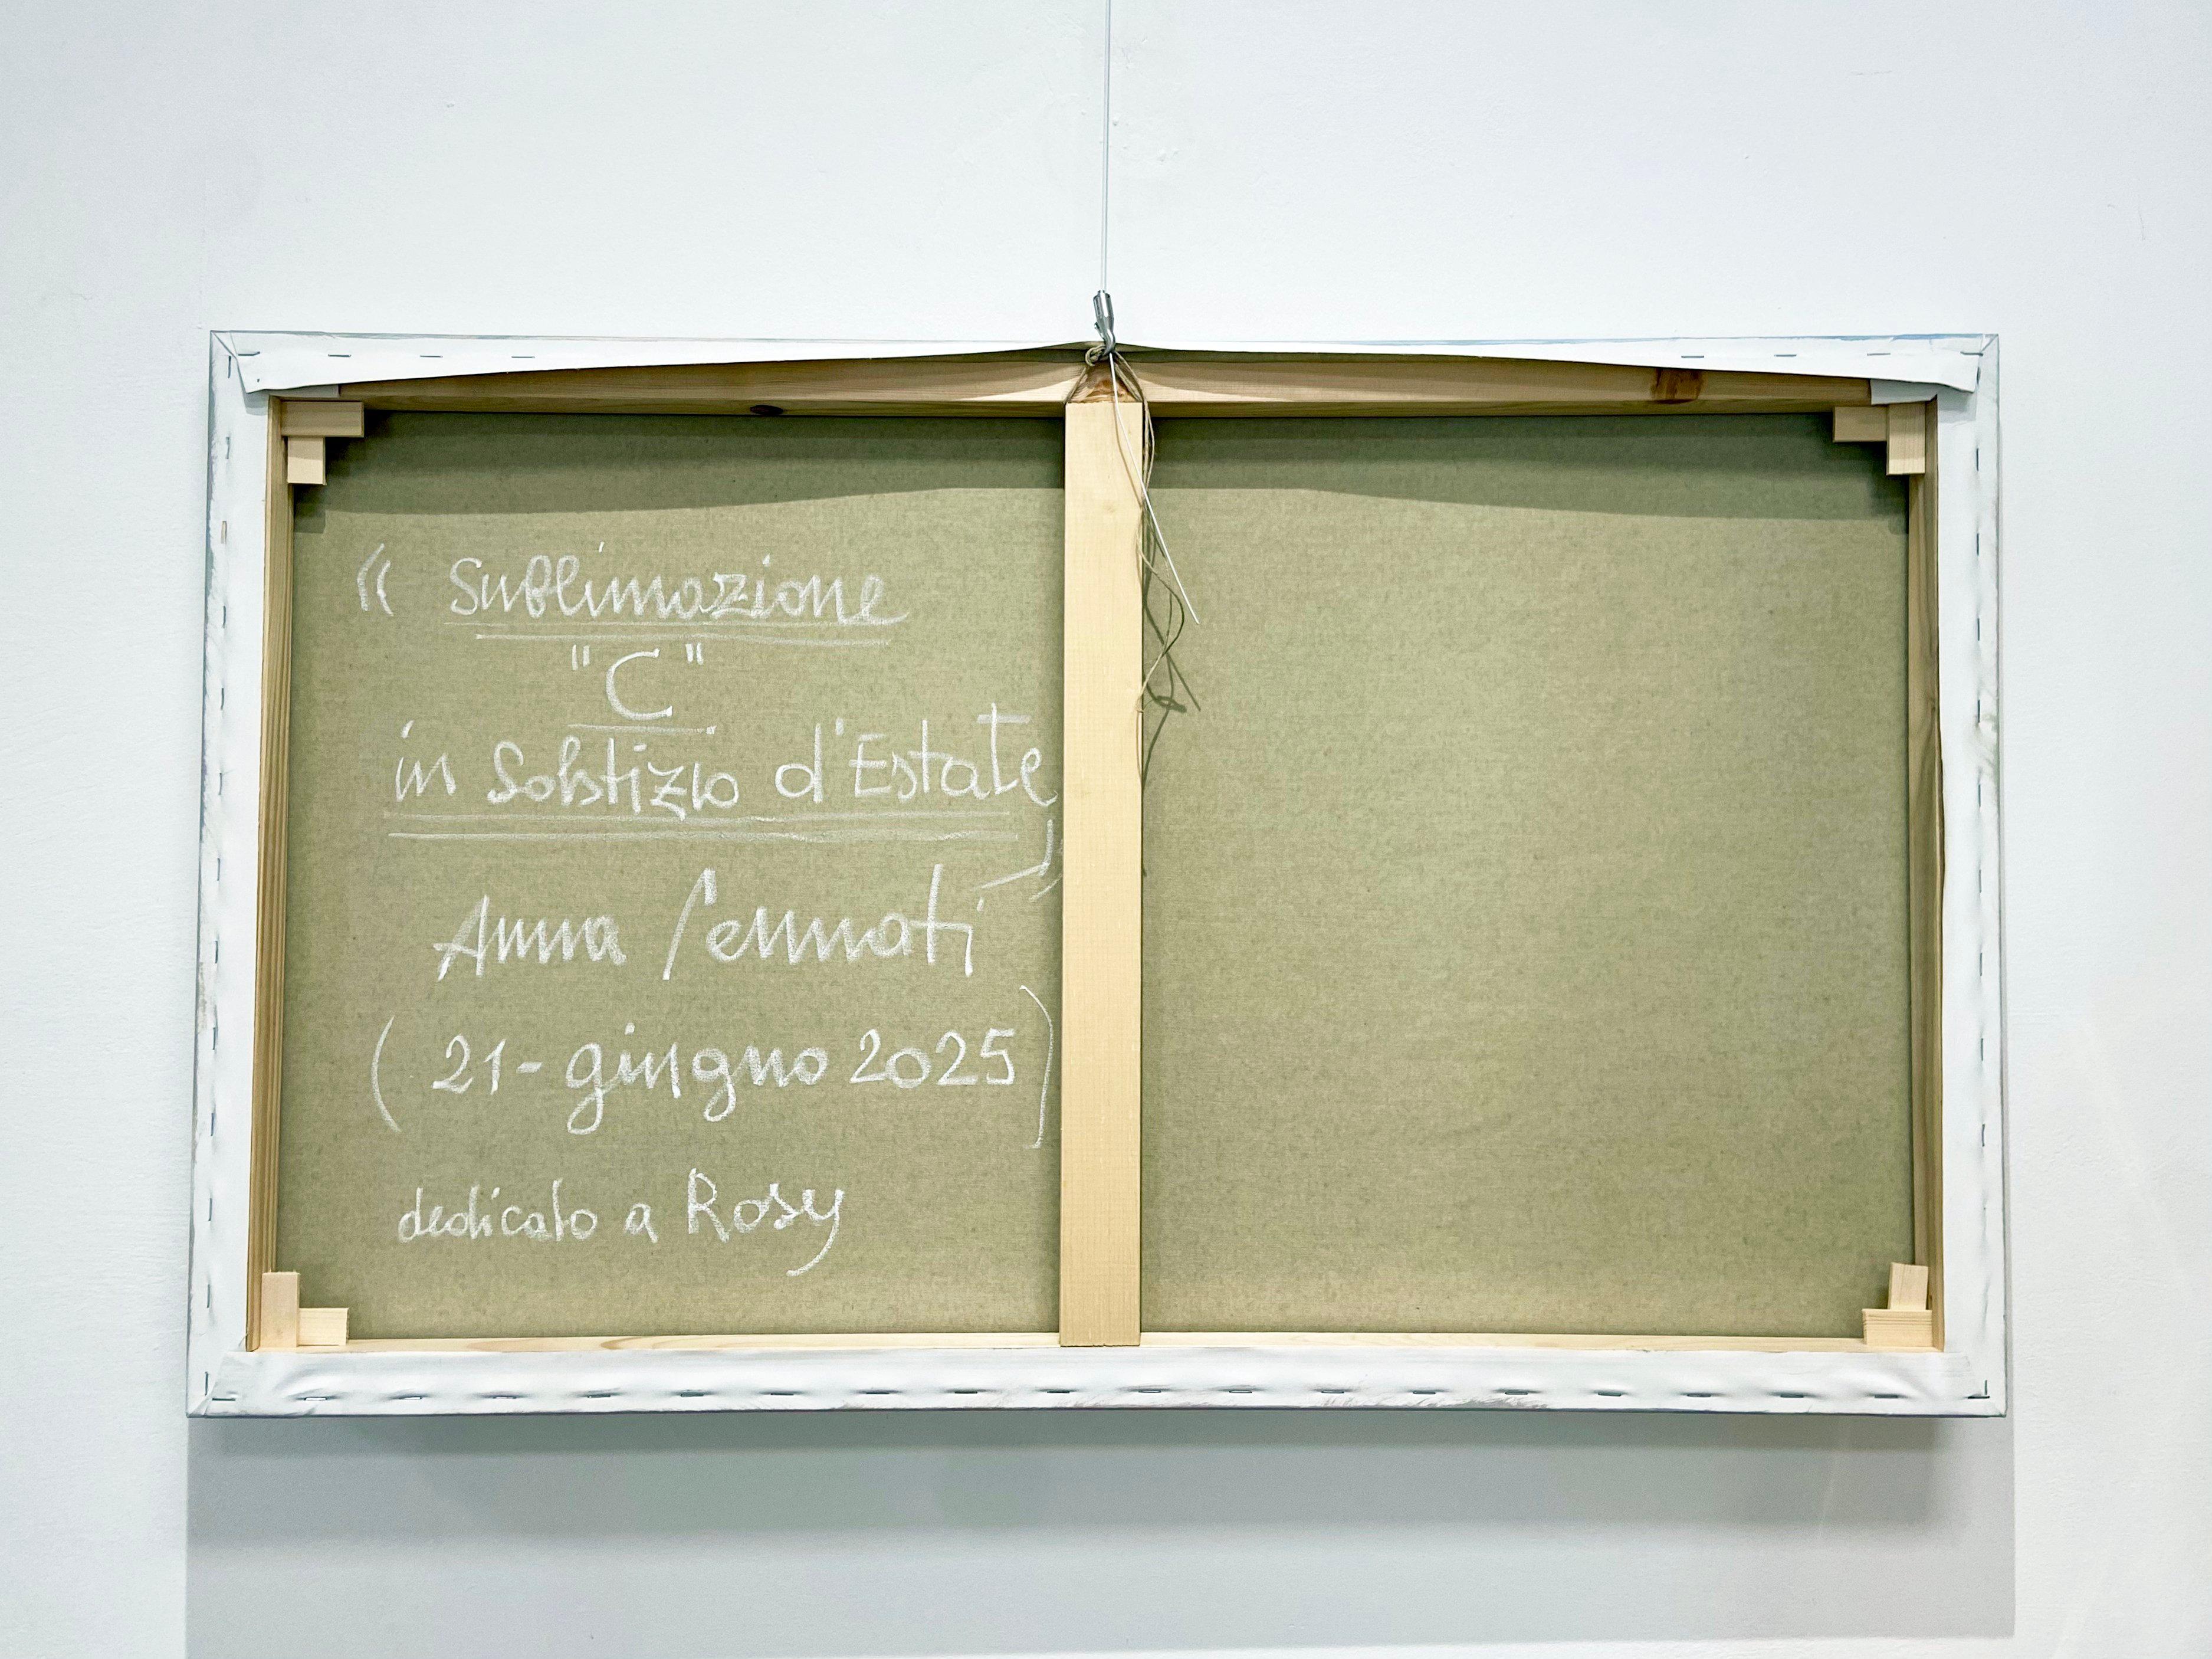 “ Sublimazione
"C"
in Solstizio d'Estate ”
Anna Pennati
( 21 - giugno 2025 )
dedicato a Rosy